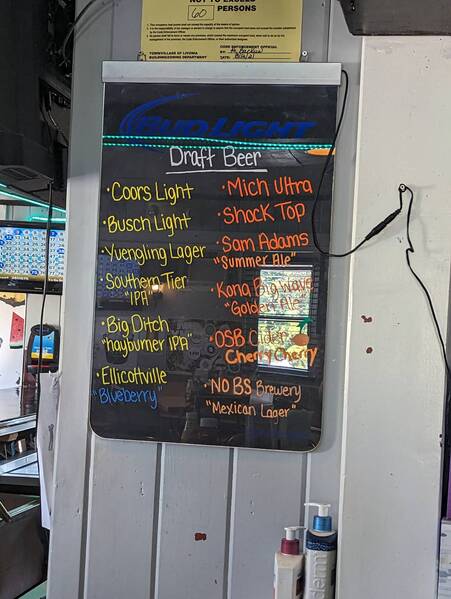 NOT TO EXCEED
60 PERSONS
TOWN/VILLAGE OF LIVONIA
BUILDING/ZONING DEPARTMENT
CODE ENFORCEMENT OFFICIAL
BY:
DATE:
BUD LIGHT
Draft Beer
• Coors Light
• Busch Light
• Yuengling Lager
• Southern Tier
"IPA"
• Big Ditch
"hayburner IPA"
• Ellicottville
"Blueberry"
• Mich Ultra
• Shock Top
• Sam Adams
"Summer Ale"
• Kona Big Wave
"Golden Ale"
• OSB Cider
Cherry Cherry
• NO BS Brewery
"Mexican Lager"